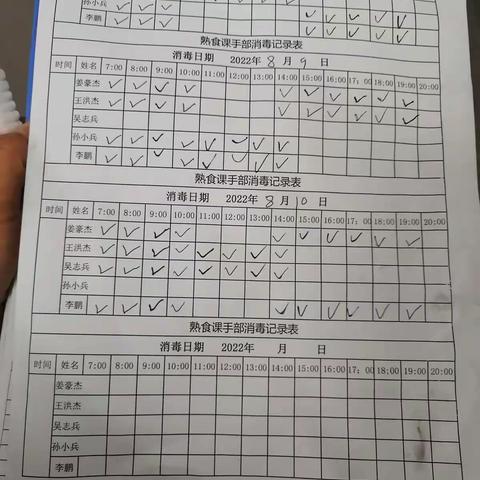 孙小兵 ✓ ✓ ✓
李鹏 ✓ ✓ ✓ ✓ ✓ ✓ ✓ ✓
熟食课手部消毒记录表
消毒日期 2022年 8 月 9 日
时间 姓名 7:00 8:00 9:00 10:00 11:00 12:00 13:00 14:00 15:00 16:00 17：00 18:00 19:00 20:00
姜豪杰 ✓ ✓ ✓ ✓ ✓ ✓ ✓ ✓ ✓ ✓
王洪杰 ✓ ✓ ✓ ✓ ✓ ✓ ✓ ✓ ✓ ✓
吴志兵
孙小兵 ✓ ✓ ✓ ✓ ✓ ✓ ✓ ✓
李鹏 ✓ ✓ ✓ ✓ ✓ ✓ ✓ ✓
熟食课手部消毒记录表
消毒日期 2022年 8 月 10 日
时间 姓名 7:00 8:00 9:00 10:00 11:00 12:00 13:00 14:00 15:00 16:00 17：00 18:00 19:00 20:00
姜豪杰 ✓ ✓ ✓ ✓ ✓ ✓ ✓ ✓ ✓ ✓
王洪杰 ✓ ✓ ✓ ✓ ✓ ✓ ✓ ✓
吴志兵 ✓ ✓ ✓ ✓ ✓ ✓ ✓ ✓
孙小兵
李鹏 ✓ ✓ ✓ ✓ ✓ ✓ ✓ ✓ ✓ ✓
熟食课手部消毒记录表
消毒日期 2022年 月 日
时间 姓名 7:00 8:00 9:00 10:00 11:00 12:00 13:00 14:00 15:00 16:00 17：00 18:00 19:00 20:00
姜豪杰
王洪杰
吴志兵
孙小兵
李鹏